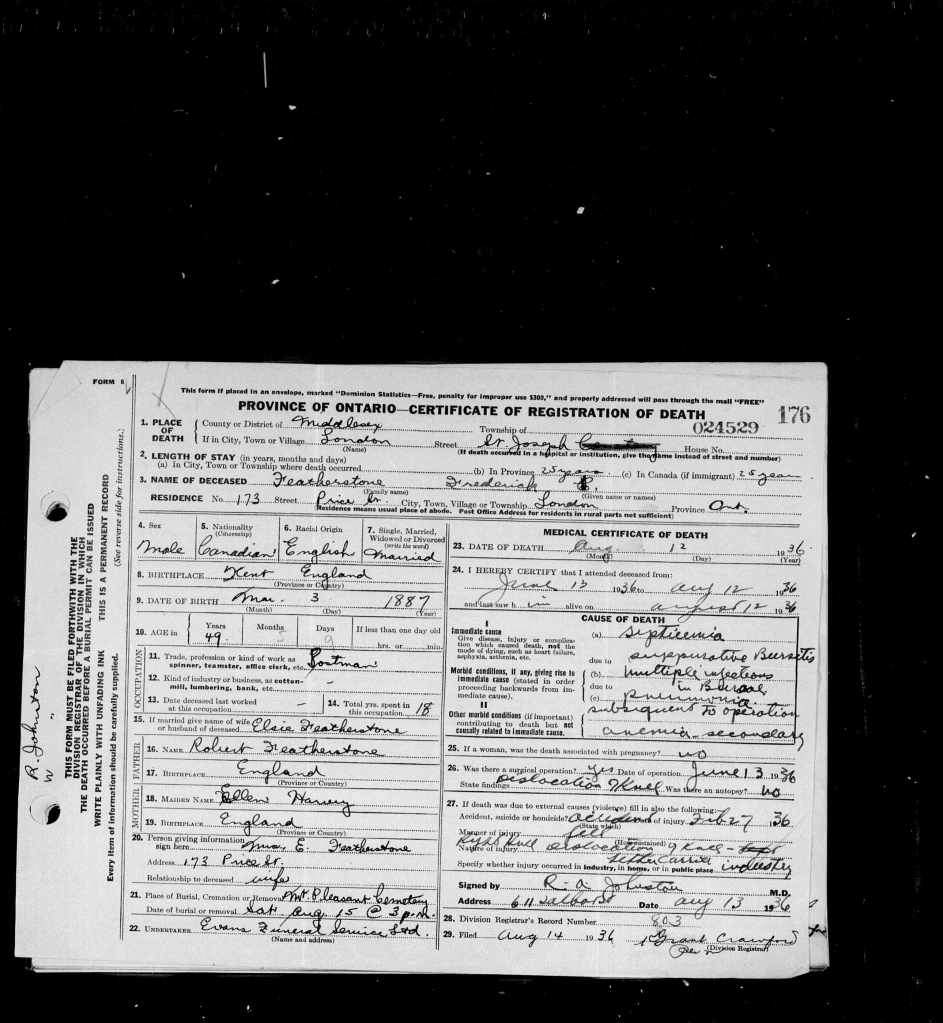 FORM 6
This form if placed in an envelope, marked "Dominion Statistics—Free, penalty for improper use $300," and properly addressed will pass through the mail "FREE"
PROVINCE OF ONTARIO—CERTIFICATE OF REGISTRATION OF DEATH
176
024529
1. PLACE OF DEATH
County or District of Middlesex Township of
If in City, Town or Village London Street St. Joseph House No.
(Name) (If death occurred in a hospital or institution, give the name instead of street and number)
2. LENGTH OF STAY (in years, months and days)
(a) In City, Town or Township where death occurred (b) In Province 25 years. (c) In Canada (if immigrant) 25 year
3. NAME OF DECEASED Featherstone Frederick
(Family name) (Given name or names)
RESIDENCE No. 173 Street Price St. City, Town, Village or Township London Province Ont.
Residence means usual place of abode. Post Office Address for residents in rural parts not sufficient)
4. Sex
Male
5. Nationality (Citizenship)
Canadian
6. Racial Origin
English
7. Single, Married, Widowed or Divorced (write the word)
Married
8. BIRTHPLACE Kent England
(Province or Country)
9. DATE OF BIRTH Mar. 3 1887
(Month) (Day) (Year)
10. AGE in Years Months Days If less than one day old
49 5 9 hrs. or min.
OCCUPATION
11. Trade, profession or kind of work as spinner, teamster, office clerk, etc. Postman
12. Kind of industry or business, as cotton-mill, lumbering, bank, etc. —
13. Date deceased last worked at this occupation —
14. Total yrs. spent in this occupation 18
15. If married give name of wife or husband of deceased Elsie Featherstone
FATHER
16. NAME Robert Featherstone
17. BIRTHPLACE England
(Province or Country)
MOTHER
18. MAIDEN NAME Ellen Harvey
19. BIRTHPLACE England
(Province or Country)
20. Person giving information sign here Mrs E. Featherstone
Address 173 Price St.
Relationship to deceased wife
21. Place of Burial, Cremation or Removal Mt. Pleasant Cemetery
Date of burial or removal Sat. Aug. 15 @ 3 p.m.
22. UNDERTAKER Evans Funeral Service Ltd.
(Name and address)
MEDICAL CERTIFICATE OF DEATH
23. DATE OF DEATH Aug. 12 1936.
(Month) (Day) (Year)
24. I HEREBY CERTIFY that I attended deceased from:
June 13 1936 to Aug 12 1936
and last saw h im alive on August 12 1936
CAUSE OF DEATH
I
Immediate cause
Give disease, injury or complication which caused death, not the mode of dying, such as heart failure, asphyxia, asthenia, etc.
(a) Septicemia
due to suppurative Bursitis
Morbid conditions, if any, giving rise to immediate cause (stated in order proceeding backwards from immediate cause).
(b) multiple injections
due to in Bursae
(c) pneumonia.
II
Other morbid conditions (if important) contributing to death but not causally related to immediate cause.
subsequent to operation
anemia - secondary
25. If a woman, was the death associated with pregnancy? no
26. Was there a surgical operation? yes Date of operation June 13 1936
State findings Dislocation of Knee Was there an autopsy? no
27. If death was due to external causes (violence) fill in also the following:
Accident, suicide or homicide? accident Date of injury Feb 27 36
(State which)
Manner of injury fell
(How sustained)
Nature of injury Right Knee Dislocation of Knee
Letter Carrier
Specify whether injury occurred in industry, in home, or in public place industry
Signed by R. A. Johnston M.D.
Address 611 Talbot St Date Aug 13 1936
28. Division Registrar's Record Number 803
29. Filed Aug 14 1936 Grant Crawford
(Division Registrar)
THIS FORM MUST BE FILED FORTHWITH WITH THE DIVISION REGISTRAR OF THE DIVISION IN WHICH THE DEATH OCCURRED BEFORE A BURIAL PERMIT CAN BE ISSUED
WRITE PLAINLY WITH UNFADING INK THIS IS A PERMANENT RECORD
Every item of information should be carefully supplied. (See reverse side for instructions.)
R. Johnston
W "